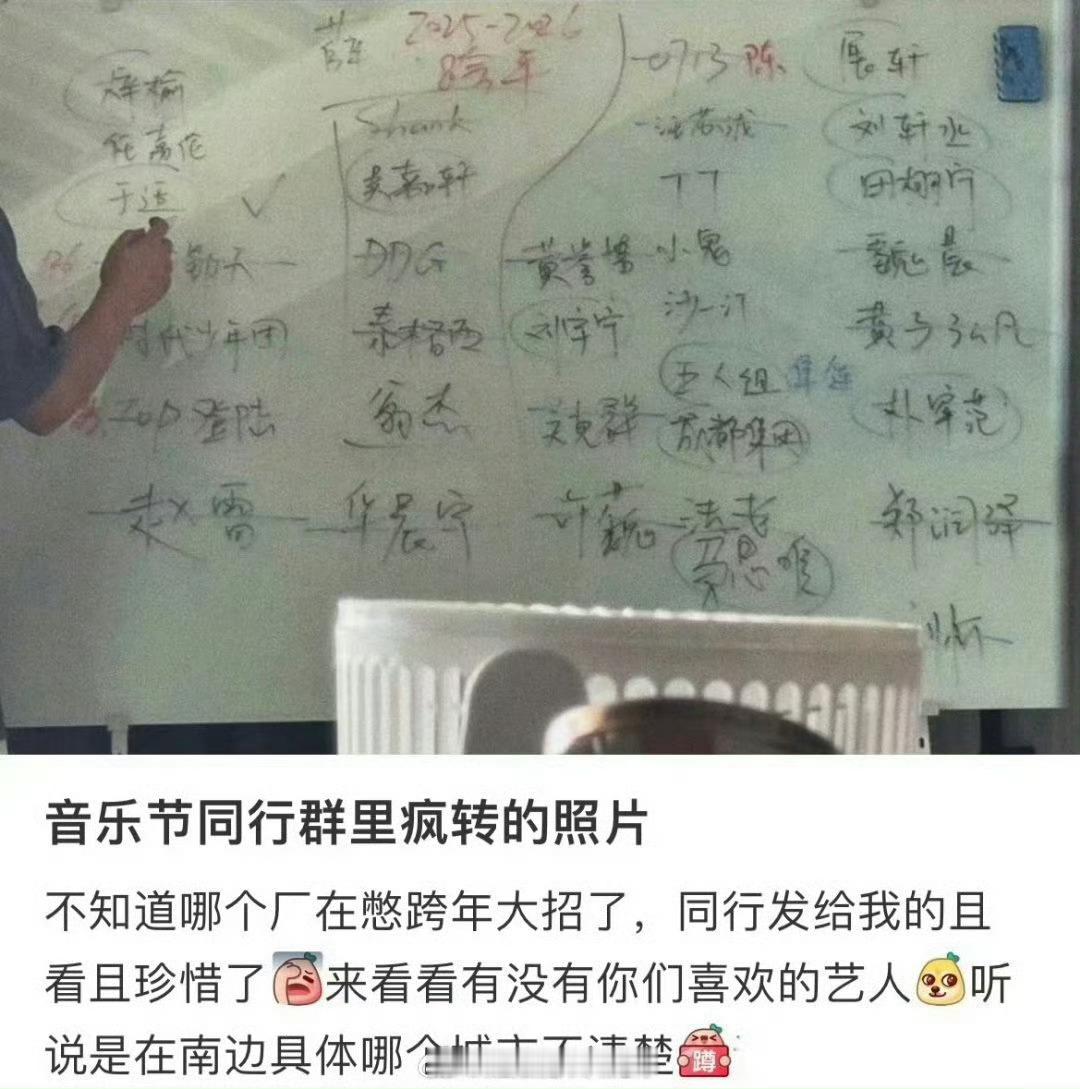 2025-2026
跨年
单榆
任嘉伦
于适
勤天
时代少年团
TOP登陆
赵雷
Shank
黄嘉轩
DDG
秦格西
翁杰
华晨宇
黄誉博
刘宇宁
艾克群
许巍
-0713陈
汪苏泷
丁丁
小鬼
沙一汀
五人组
成都集团
法老
马思唯
展轩
刘轩丞
田栩宁
魏晨
黄子弘凡
朴宰范
郑润泽
音乐节同行群里疯转的照片
不知道哪个厂在憋跨年大招了，同行发给我的且
看且珍惜了来看看有没有你们喜欢的艺人听
说是在南边具体哪个城市不清楚
蹲